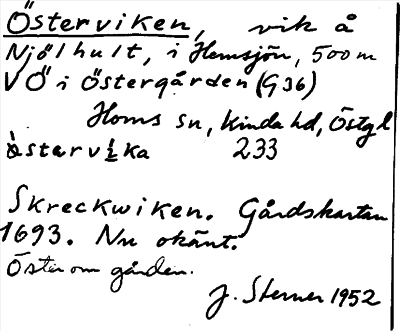 Österviken, vik å
Njölhult, i Hemsjön, 500 m
VÖ i Östergården (G36)
Horns sn, Kinda hd, Östgl
östervika 233
Skreckwiken. Gårdskartan
1693. Nu okänt.
Öster om gården.
J. Sterner 1952